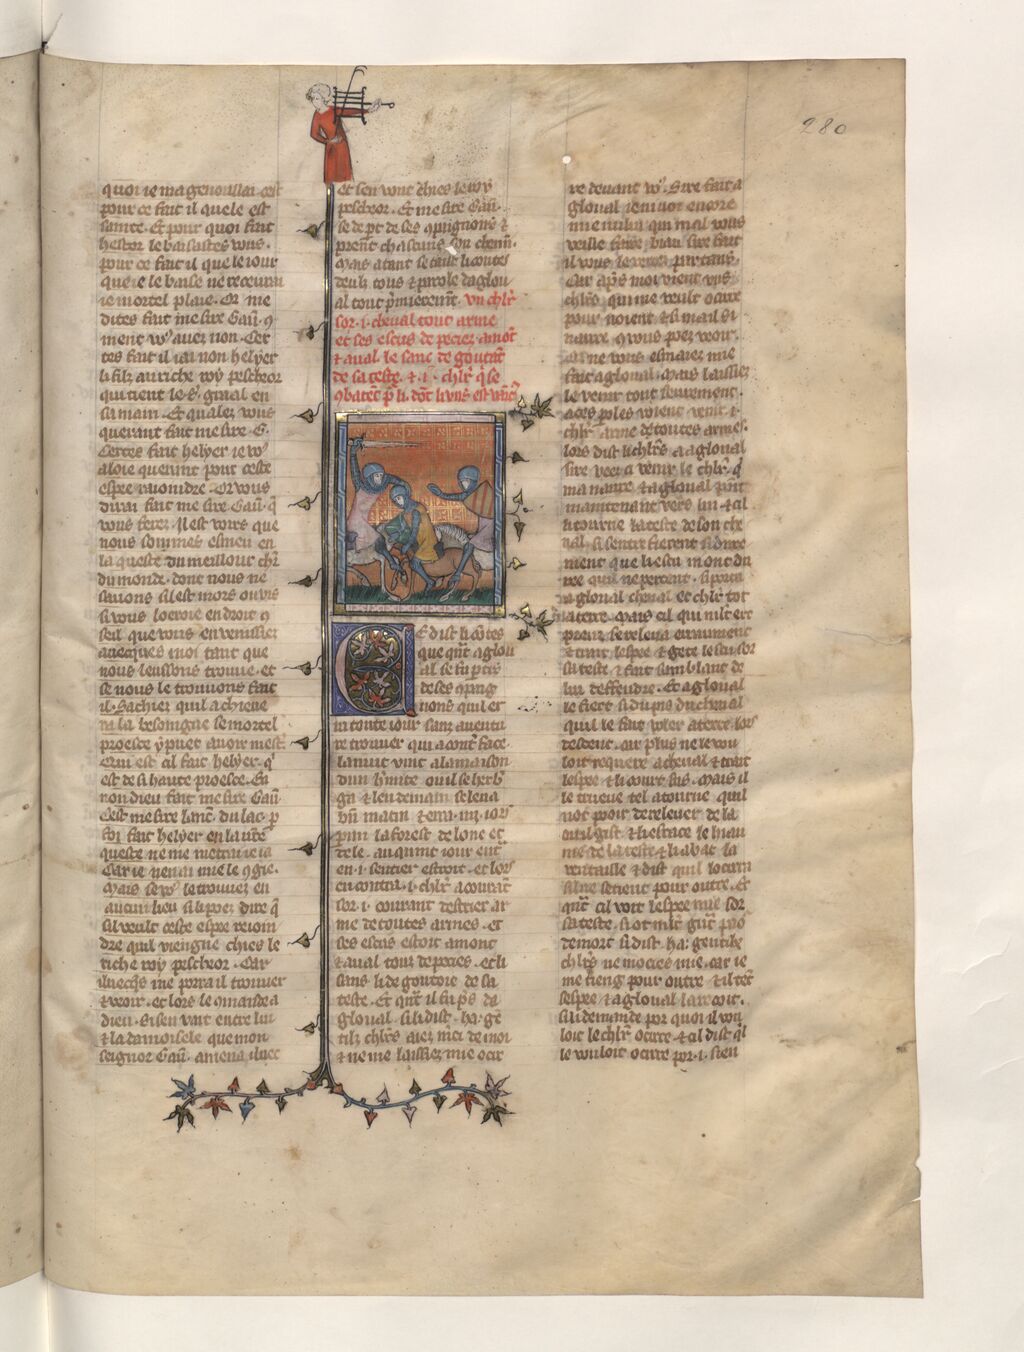 280
quoi ie magenoillai cest
pour ce fait il quele est
sainte. Et pour quoi fait
hestor le baisastes vous.
pour ce fait il que le iour
que ie le baise ne receurai
ie mortel plaie. Or me
dites fait mesire Gaū. 9
ment vꝰ auez non. Cer
tes fait il iai non helyer
li filz au riche roy pescheor
qui tient le s. graal en
sa main. Et qualez vous
querant fait mesire .G.
Certes fait helyer ie vꝰ
aloie querant pour ceste
espee raioindre. Or vous
dirai fait mesire Gaū. q̄
vous ferez. Il est voirs que
nous sommes esmeu en
la queste du meillour chr̄
du monde. dont nous ne
sauons sil est mors ou vis
si vous loeroie en droit 9
seil que vous en venissiez
auecques moi tant que
nous leussons trouue. et
se nous le trouuons fait
il. Sachiez quil achieue
ra la besoingne se mortel
proesce y puet auoir mest̄
Qui est cil fait helyer. q̄
est de si haute proesce. En
non dieu fait mesire Gaū.
Cest mesire lanc̄. du lac. p
foi fait helyer en la ur̄e
queste ne me metrai ie ia
Car ie nen ai mie le 9gie.
Mais se vꝰ le trouuez en
aucun lieu si li poez dire q̄
sil veult ceste espee reioin
dre quil viengne chies le
riche roy pescheor. Car
iluecq̄s me porra il trouuer
& veoir. et lors le 9mande a
dieu. Si sen vait entre lui
& la damoisele que mon
seignor Gaū. amena iluec
et sen vont chies le roy
pescheor. Et mesire Gaū.
se depˉt de ses 9paignons &
prent chascuns son chemī.
Mais atant se taist li contes
deulz tous & parole daglou
al tout p̄mierement. Un chl̄r
sor .i. cheual tout arme
et ses escus depeciez amōt
& aual. le sanc degoutāt
de sa teste. & .i. chl̄r q̄ se
9batēt p̄ li. dōt li vns est vaincꝰ
E dist li cōtes
que qn̄t aglou
al se fu ptis
de ses 9paig
nons quil er
ra toute iour sanz auentu
re trouuer qui acont face.
la nuit vint a la maison
dun hermite ou il se herb̄
ga & lendemain se leua
bn̄ matin & erra .iiij. iors
parmi la forest de lone et
de le. au quint iour entˉ
en .i. sentier estroit. et lors
encontra .i. chl̄r acourāt
sor .i. courant destrier ar
me de toutes armes. et
ses escus estoit amont
& aual touz depecies. et li
sans li degoutoit de sa
teste. Et qn̄t il fu p̄s da
gloual si li dist. ha. gē
tilz chl̄rs aiez m̄ci de moi
& ne me laissiez mie ocir
re deuant vꝰ. Sire fait a
gloual ie ni voi encore
mie nului qui mal vous
veille faire. biau sire fait
il vous le verrez par tans.
Car ap̄s moi vient vns
chl̄rs qui me veult ocirre
pour noient & si mail si
naure 9 vous poez veoir.
Or ne vous esmaiez mie
fait agloual. Mais laissiez
le venir tout seurement.
a ces paroles voient venir .i.
chl̄r arme de toutes armes.
lors dist li chl̄rs a agloual
sire veez ci venir le chl̄r. q̄
ma naure. & agloual point
maintenant vers lui & cil
li tourne la teste de son che
ual. si sentre fierent si dure
ment que li escu ni ont du
ree quil ne percent. si porta
agloual cheual et chl̄r tot
a terre. Mais cil qui mlt̄ ert
preuz se releua erraument
& trait lespee & gete lescu sor
sa teste. & fait samblant de
lui deffendre. Et agloual
le fiert si du pis du cheual
quil le fait voler a terre. lors
descent. car plus ne le vou
loit requerre a cheual & trait
lespee & li court sus. Mais il
le trueue tel atourne quil
not pooir de releuer de la
ou il gist. & li esrace le hiau
me de la teste & li abat la
ventaille & dist quil locirra
sil ne se tient pour outre. Et
qn̄t cil voit lespee nue sor
sa teste. si ot mlt̄ gn̄t paor
de mort si dist. ha. gentilz
chl̄rs ne mociez mie. car ie
me tieng pour outre. & il tēt
sespee & agloual la recoit.
si li demande por quoi il vou
loit le chl̄r ocirre. & cil dist q̄l
le vouloit ocirre por .i. sien